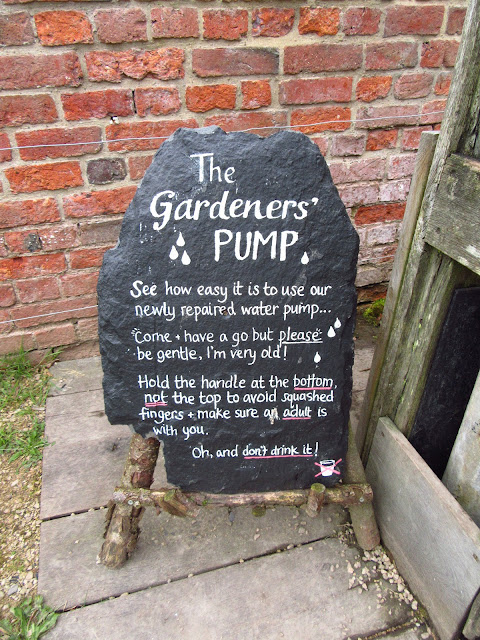 The
Gardeners'
PUMP
See how easy it is to use our
newly repaired water pump...
"Come + have a go but please"
be gentle, I'm very old!
Hold the handle at the bottom,
not the top to avoid squashed
fingers + make sure an adult is
with you.
Oh, and don't drink it!